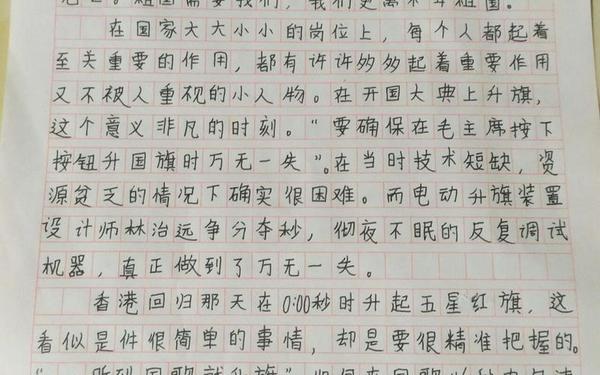 祖国需要我们，我们更离不开祖国。
在国家大大小小的岗位上，每个人都起着
至关重要的作用，都有许许多多起着重要作用
又不被人重视的小人物。在开国大典上升旗，
这个意义非凡的时刻。“要确保在毛主席按下
按钮升国旗时万无一失”。在当时技术短缺，资
源贫乏的情况下确实很困难。而电动升旗装置
设计师林治远争分夺秒，彻夜不眠的反复调试
机器，真正做到了万无一失。
香港回归那天在0:00秒时升起五星红旗，这
看似是件很简单的事情，却是要很精准把握的。
“听到国歌就升旗”